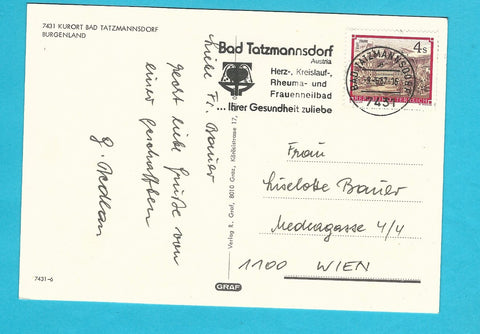 7431 KURORT BAD TATZMANNSDORF
BURGENLAND
Liebe Fr. Bauer
recht liebe Grüße von
einer geschafften
Bad Tatzmannsdorf
Austria
Herz-, Kreislauf-,
Rheuma- und
Frauenheilbad
...Ihrer Gesundheit zuliebe
4s
BAD TATZMANNSDORF
7431
REPUBLIK ÖSTERREICH
Verlag R. Graf, 8010 Graz,
Frau
Liselotte Bauer
4/4
1100 WIEN
7431-6
GRAF